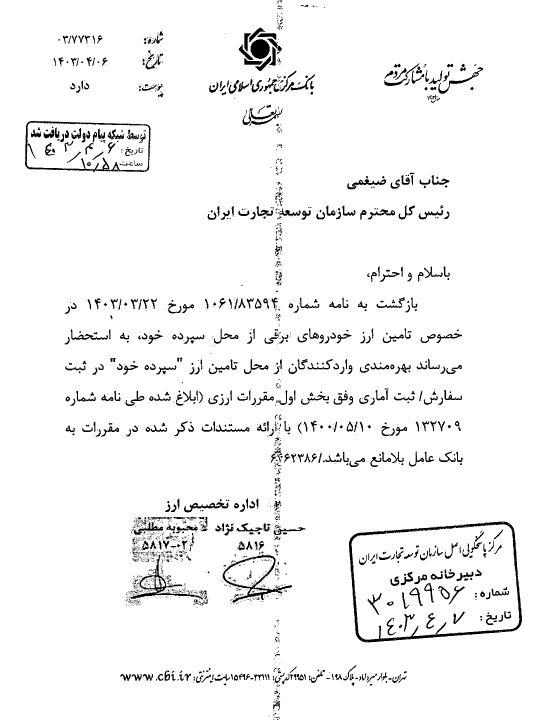 جهش تولید با مشارکت مردم
بانک مرکزی جمهوری اسلامی ایران
بسمه تعالی
شماره: ۰۳/۷۷۳۱۶
تاریخ: ۱۴۰۳/۰۴/۰۶
پیوست: دارد
توسط شبکه پیام دولت دریافت شد
تاریخ: ۱۴۰۳/۴/۶
ساعت ۱۰/۵۸
جناب آقای ضیغمی
رئیس کل محترم سازمان توسعه تجارت ایران
باسلام و احترام،
بازگشت به نامه شماره ۱۰۶۱/۸۳۵۹۴ مورخ ۱۴۰۳/۰۳/۲۲ در
خصوص تامین ارز خودروهای برقی از محل سپرده خود، به استحضار
می‌رساند بهره‌مندی واردکنندگان از محل تامین ارز "سپرده خود" در ثبت
سفارش/ ثبت آماری وفق بخش اول مقررات ارزی (ابلاغ شده طی نامه شماره
۱۳۲۷۰۹ مورخ ۱۴۰۰/۰۵/۱۰) با ارائه مستندات ذکر شده در مقررات به
بانک عامل بلامانع می‌باشد./۶۴۶۲۳۸۶
اداره تخصیص ارز
حسین تاجیک نژاد محبوبه مطلبی
۵۸۱۶ ۵۸۱۷-۰۲
مرکز پاسخگویی اصل سازمان توسعه تجارت ایران
دبیرخانه مرکزی
شماره: ۳۰۱۹۹۵۶
تاریخ: ۱۴۰۳/۴/۷
تهران- بلوار میرداماد- پلاک ۱۹۸- تلفن: ۲۹۹۵۱ کدپستی: ۳۳۱۱۱-۱۵۴۹۶ سایت اینترنتی: www.cbi.ir